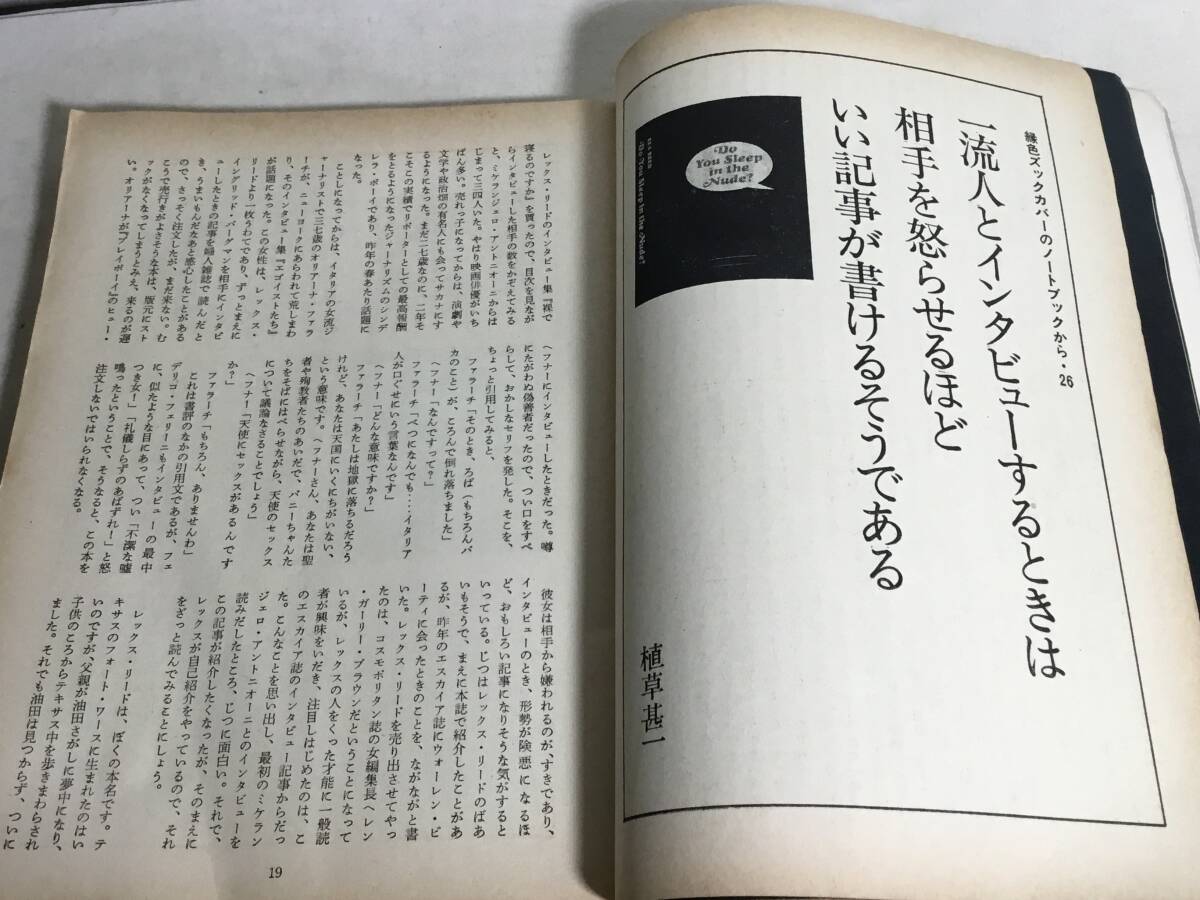 緑色ズックカバーのノートブックから・26
一流人とインタビューするときは
相手を怒らせるほど
いい記事が書けるそうである
植草甚一
Do
You Sleep
in the
Nude?
REX REED
Do You Sleep in the Nude?
レックス・リードのインタビュー集『裸で
寝るのですか』を買ったので、目次を見なが
らインタビューした相手の数をかぞえてみる
と、ミケランジェロ・アントニオーニからは
じまって三四人いた。やはり映画俳優がいち
ばん多い。売れっ子になってからは、演劇や
文学や政治畑の有名人にも会ってサカナにす
るようになった。まだ二七歳なのに、二年そ
こそこの実績でリポーターとしての最高報酬
をとるようになったジャーナリズムのシンデ
レラ・ボーイであり、昨年の春あたり話題に
なった。
ことしになってからは、イタリアの女流ジ
ャーナリストで三七歳のオリアーナ・ファラ
ーチが、ニューヨークにあらわれて荒しまわ
り、そのインタビュー集『エゴイストたち』
が話題になった。この女性は、レックス・
リードより一枚うわてであり、ずっとまえに
イングリッド・バーグマンを相手にインタビ
ューしたときの記事を婦人雑誌で読んだと
き、うまいもんだなあと感心したことがある
ので、さっそく注文したが、まだ来ない。む
こうで売行きがよさそうな本は、版元にスト
ックがなくなってしまうとみえ、来るのが遅
い。オリアーナが『プレイボーイ』のヒュー・
ヘフナーにインタビューしたときだった。噂
にたがわぬ偽善者だったので、つい口をすべ
らして、おかしなセリフを発した。そこを、
ちょっと引用してみると、
ファラーチ「そのとき、ろば（もちろんバ
カのこと）が、ころんで倒れ落ちました」
ヘフナー「なんですって？」
ファラーチ「べつになんでも‥‥イタリア
人が口ぐせにいう言葉なんです」
ヘフナー「どんな意味ですか？」
ファラーチ「あたしは地獄に落ちるだろう
けれど、あなたは天国にいくにちがいない、
という意味です。ヘフナーさん、あなたは聖
者や殉教者たちのあいだで、バニーちゃんた
ちをそばにはべらせながら、天使のセックス
について議論なさることでしょう」
ヘフナー「天使にセックスがあるんです
か？」
ファラーチ「もちろん、ありませんわ」
これは書評のなかの引用文であるが、フェ
デリゴ・フェリーニもインタビューの最中
に、似たような目にあって、つい「不潔な嘘
つき女！」「礼儀しらずのあばずれ！」と怒
鳴ったということで、そうなると、この本を
注文しないではいられなくなる。
彼女は相手から嫌われるのが、すきであり、
インタビューのとき、形勢が険悪になるほ
ど、おもしろい記事になりそうな気がすると
いっている。じつはレックス・リードのばあ
いもそうで、まえに本誌で紹介したことがあ
るが、昨年のエスカイア誌にウォーレン・ビ
ーティに会ったときのことを、ながながと書
いた。レックス・リードを売り出させてやっ
たのは、コスモポリタン誌の女編集長ヘレン
・ガーリー・ブラウンだということになって
いるが、レックスの人をくった才能に一般読
者が興味をいだき、注目しはじめたのは、こ
のエスカイア誌のインタビュー記事からだっ
た。こんなことを思い出し、最初のミケラン
ジェロ・アントニオーニとのインタビューを
読みだしたところ、じつに面白い。それで、
この記事が紹介したくなったが、そのまえに
レックスが自己紹介をやっているので、それ
をざっと読んでみることにしよう。
レックス・リードは、ぼくの本名です。テ
キサスのフォート・ワースに生まれたのはい
いのですが、父親が油田さがしに夢中になり、
子供のころからテキサス中を歩きまわらされ
ました。それでも油田は見つからず、ついに
19